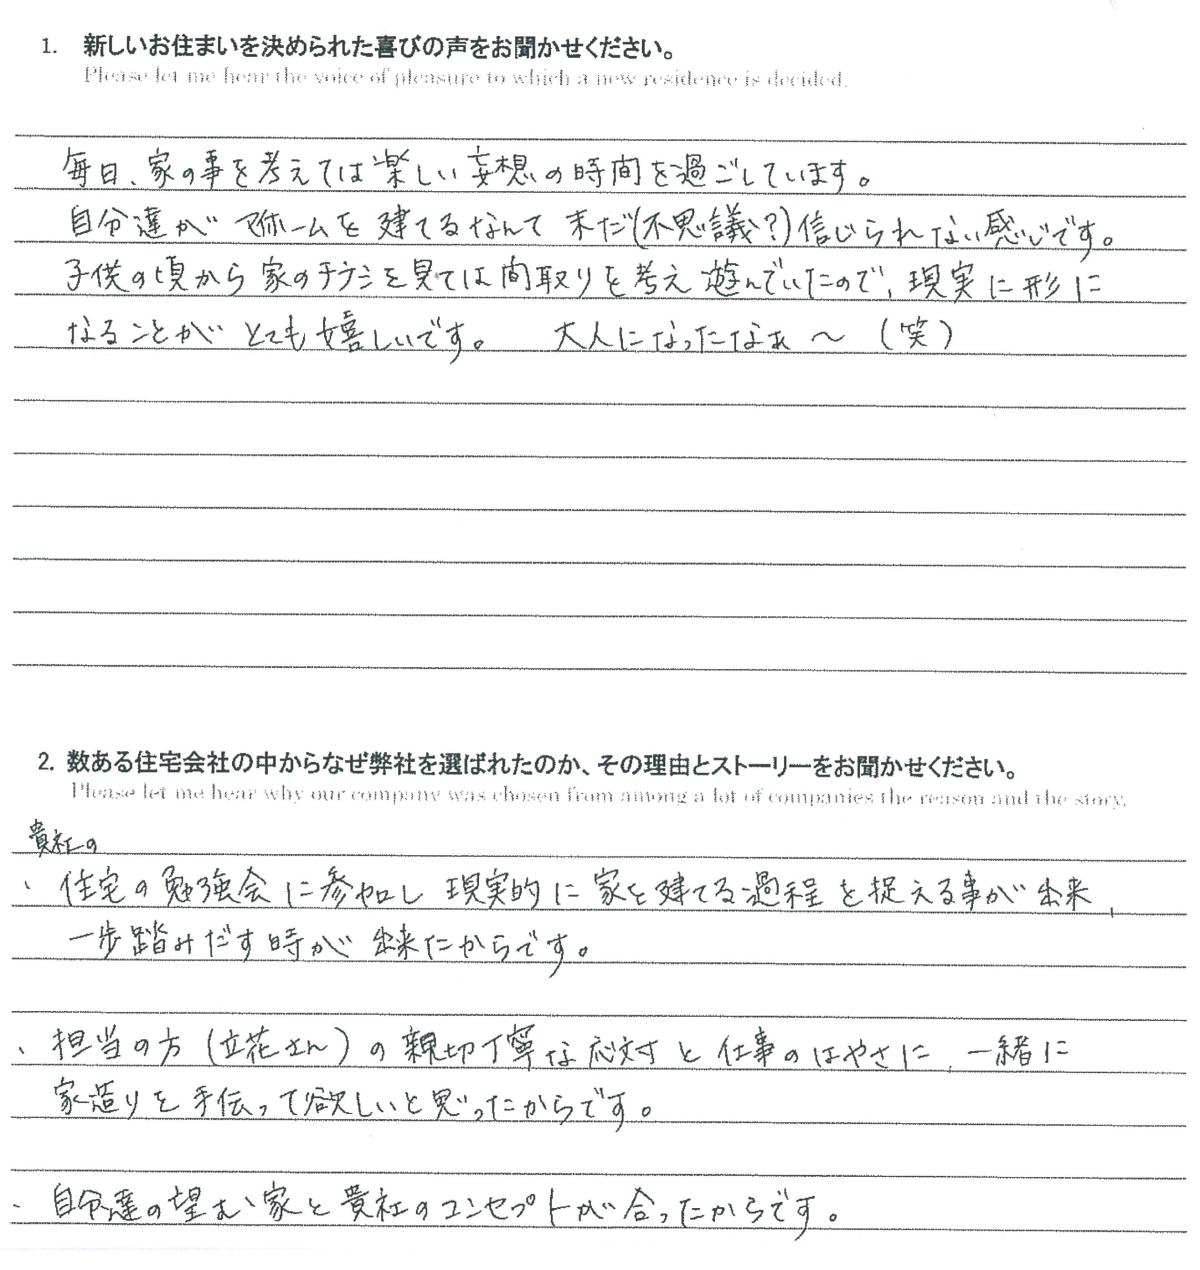 1. 新しいお住まいを決められた喜びの声をお聞かせください。
Please let me hear the voice of pleasure to which a new residence is decided.
毎日、家の事を考えては楽しい妄想の時間を過ごしています。
自分達がマイホームを建てるなんて未だ(不思議?)信じられない感じです。
子供の頃から家のチラシを見ては間取りを考え遊んでいたので、現実に形に
なることがとても嬉しいです。 大人になったなぁ〜(笑)
2. 数ある住宅会社の中からなぜ弊社を選ばれたのか、その理由とストーリーをお聞かせください。
Please let me hear why our company was chosen from among a lot of companies the reason and the story.
貴社の
、住宅の勉強会に参加し現実的に家を建てる過程を捉える事が出来、
一歩踏みだす時が出来たからです。
、担当の方(立花さん)の親切丁寧な応対と仕事のはやさに、一緒に
家造りを手伝って欲しいと思ったからです。
、自分達の望む家と貴社のコンセプトが合ったからです。